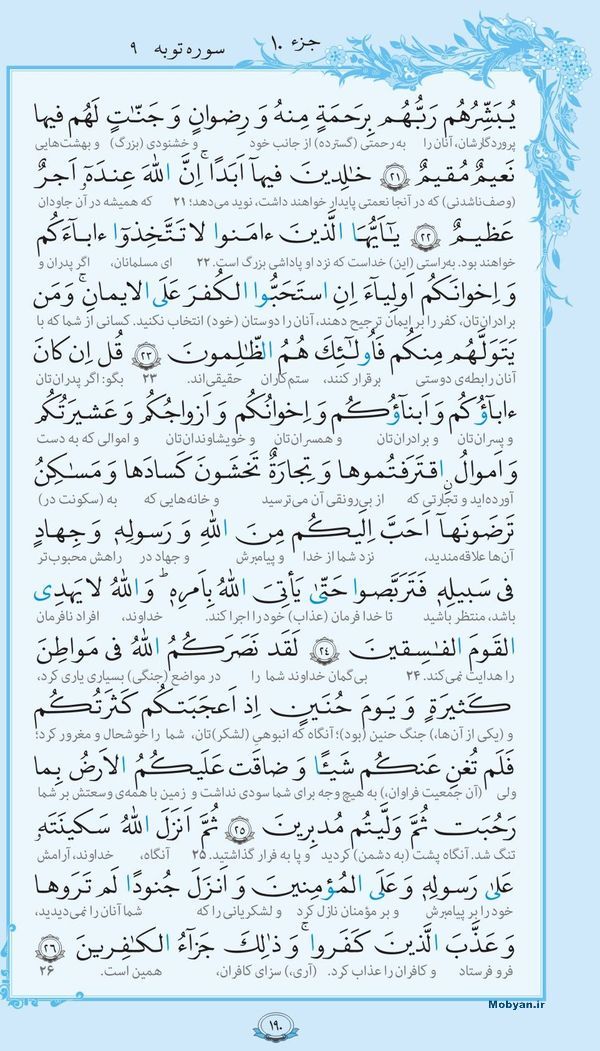 جزء ۱۰
سوره توبه ۹
يُبَشِّرُهُم رَبُّهُم بِرَحمَةٍ مِنهُ وَ رِضوانٍ وَ جَنّٰتٍ لَهُم فيها
پروردگارشان، آنان را به رحمتی (گسترده) از جانب خود و خشنودی (بزرگ) و بهشت‌هایی
نَعيمٌ مُقيمٌ ۲۱ خٰلِدينَ فيهآ اَبَدًا ۚ اِنَّ اللهَ عِندَهٓ اَجرٌ
(وصف‌ناشدنی) که در آنجا نعمتی پایدار خواهند داشت، نوید می‌دهد؛ ۲۱ که همیشه در آن جاودان
عَظيمٌ ۲۲ يٰٓاَيُّهَا الَّذينَ ءامَنوا لا تَتَّخِذوٓا ءابآءَكُم
خواهند بود. به‌راستی (این) خداست که نزد او پاداشی بزرگ است. ۲۲ ای مسلمانان، اگر پدران و
وَ اِخوانَكُم اَولِيآءَ اِنِ استَحَبُّوا الكُفرَ عَلَى الايمانِ ۚ وَ مَن
برادران‌تان، کفر را بر ایمان ترجیح دهند، آنان را دوستان (خود) انتخاب نکنید. کسانی از شما که با
يَتَوَلَّهُم مِنكُم فَاُولٰٓئِكَ هُمُ الظّٰلِمونَ ۲۳ قُل اِن كانَ
آنان رابطه‌ی دوستی برقرار کنند، ستم‌کاران حقیقی‌اند. ۲۳ بگو: اگر پدران‌تان
ءابآؤُكُم وَ اَبنآؤُكُم وَ اِخوانُكُم وَ اَزواجُكُم وَ عَشيرَتُكُم
و پسران‌تان و برادران‌تان و همسران‌تان و خویشاوندان‌تان و اموالی که به دست
وَ اَموالٌ اقتَرَفتُموها وَ تِجارَةٌ تَخشَونَ كَسادَها وَ مَسٰكِنُ
آورده‌اید و تجارتی که از بی‌رونقی آن می‌ترسید و خانه‌هایی که به (سکونت در)
تَرضَونَهآ اَحَبَّ اِلَيكُم مِنَ اللهِ وَ رَسولِهٖ وَ جِهادٍ
آن‌ها علاقه‌مندید، نزد شما از خدا و پیامبرش و جهاد در راهش محبوب‌تر
فى سَبيلِهٖ فَتَرَبَّصوا حَتّىٰ يَأتِىَ اللهُ بِاَمرِهٖ ۗ وَ اللهُ لا يَهدِى
باشد، منتظر باشید تا خدا فرمان (عذاب) خود را اجرا کند. خداوند، افراد نافرمان
القَومَ الفٰسِقينَ ۲۴ لَقَد نَصَرَكُمُ اللهُ فى مَواطِنَ
را هدایت نمی‌کند. ۲۴ بی‌گمان خداوند شما را در مواضع (جنگی) بسیاری یاری کرد،
كَثيرَةٍ وَ يَومَ حُنَينٍ اِذ اَعجَبَتكُم كَثرَتُكُم
و (یکی از آن‌ها،) جنگ حنین (بود)؛ آنگاه که انبوهیِ (لشکر)تان، شما را خوشحال و مغرور کرد؛
فَلَم تُغنِ عَنكُم شَيئًا وَ ضاقَت عَلَيكُمُ الاَرضُ بِما
ولی (آن جمعیت فراوان،) به هیچ وجه برای شما سودی نداشت و زمین با همه‌ی وسعتش بر شما
رَحُبَت ثُمَّ وَلَّيتُم مُدبِرينَ ۲۵ ثُمَّ اَنزَلَ اللهُ سَكينَتَهٗ
تنگ شد. آنگاه پشت (به دشمن) کردید و پا به فرار گذاشتید. ۲۵ آنگاه، خداوند، آرامش
عَلىٰ رَسولِهٖ وَ عَلَى المُؤمِنينَ وَ اَنزَلَ جُنودًا لَم تَرَوها
خود را بر پیامبرش و بر مؤمنان نازل کرد و لشکریانی را که شما آنان را نمی‌دیدید،
وَ عَذَّبَ الَّذينَ كَفَروا ۚ وَ ذٰلِكَ جَزآءُ الكٰفِرينَ ۲۶
فرو فرستاد و کافران را عذاب کرد. (آری،) سزای کافران، همین است. ۲۶
Mobyan.ir
۱۹۰